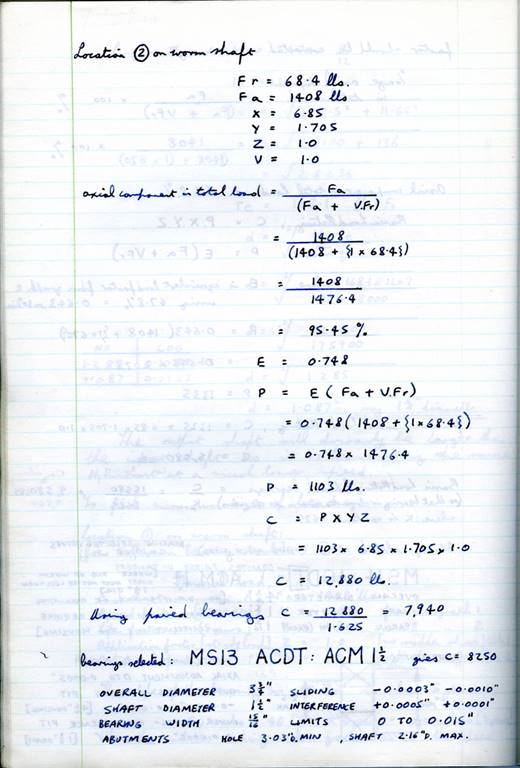 Location ② on worm shaft
Fr = 68.4 lbs.
Fa = 1408 lbs
X = 6.85
Y = 1.705
Z = 1.0
V = 1.0
axial component in total load = Fa / (Fa + V.Fr)
= 1408 / (1408 + {1 × 68.4})
= 1408 / 1476.4
= 95.45 %
E = 0.748
P = E ( Fa + V.Fr)
= 0.748 ( 1408 + {1×68.4})
= 0.748 × 1476.4
P = 1103 lbs.
C = P X Y Z
= 1103 × 6.85 × 1.705 × 1.0
C = 12,880 lb.
Using paired bearings C = 12880 / 1.625 = 7,940
bearings selected: MS13 ACDT: ACM 1½ gives C = 8250
OVERALL DIAMETER 3⅜" SLIDING -0.0003" -0.0010"
SHAFT DIAMETER 1½" INTERFERENCE +0.0005" +0.0001"
BEARING WIDTH 15/16" LIMITS 0 TO 0.015"
ABUTMENTS HOLE 3.03"D. MIN , SHAFT 2.16"D. MAX.